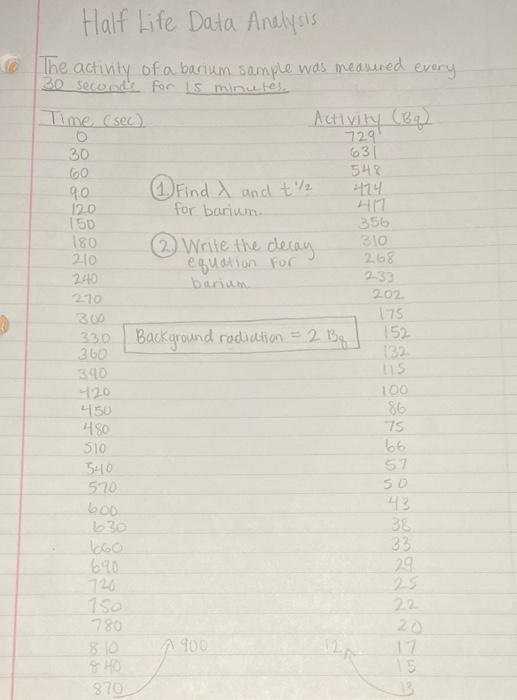 Half Life Data Analysis
The activity of a barium sample was measured every
30 seconds for 15 minutes.
Time (sec) Activity (Bq)
0 729
30 631
60 548
90 ① Find λ and t 1/2 474
120 for barium. 417
150 356
180 ② Write the decay 310
210 equation for 268
240 barium 233
270 202
300 175
330 Background radiation = 2 Bq 152
360 132
390 115
420 100
450 86
480 75
510 66
540 57
570 50
600 43
630 38
660 33
690 29
720 25
750 22
780 20
810 900 12 17
840 15
870 13